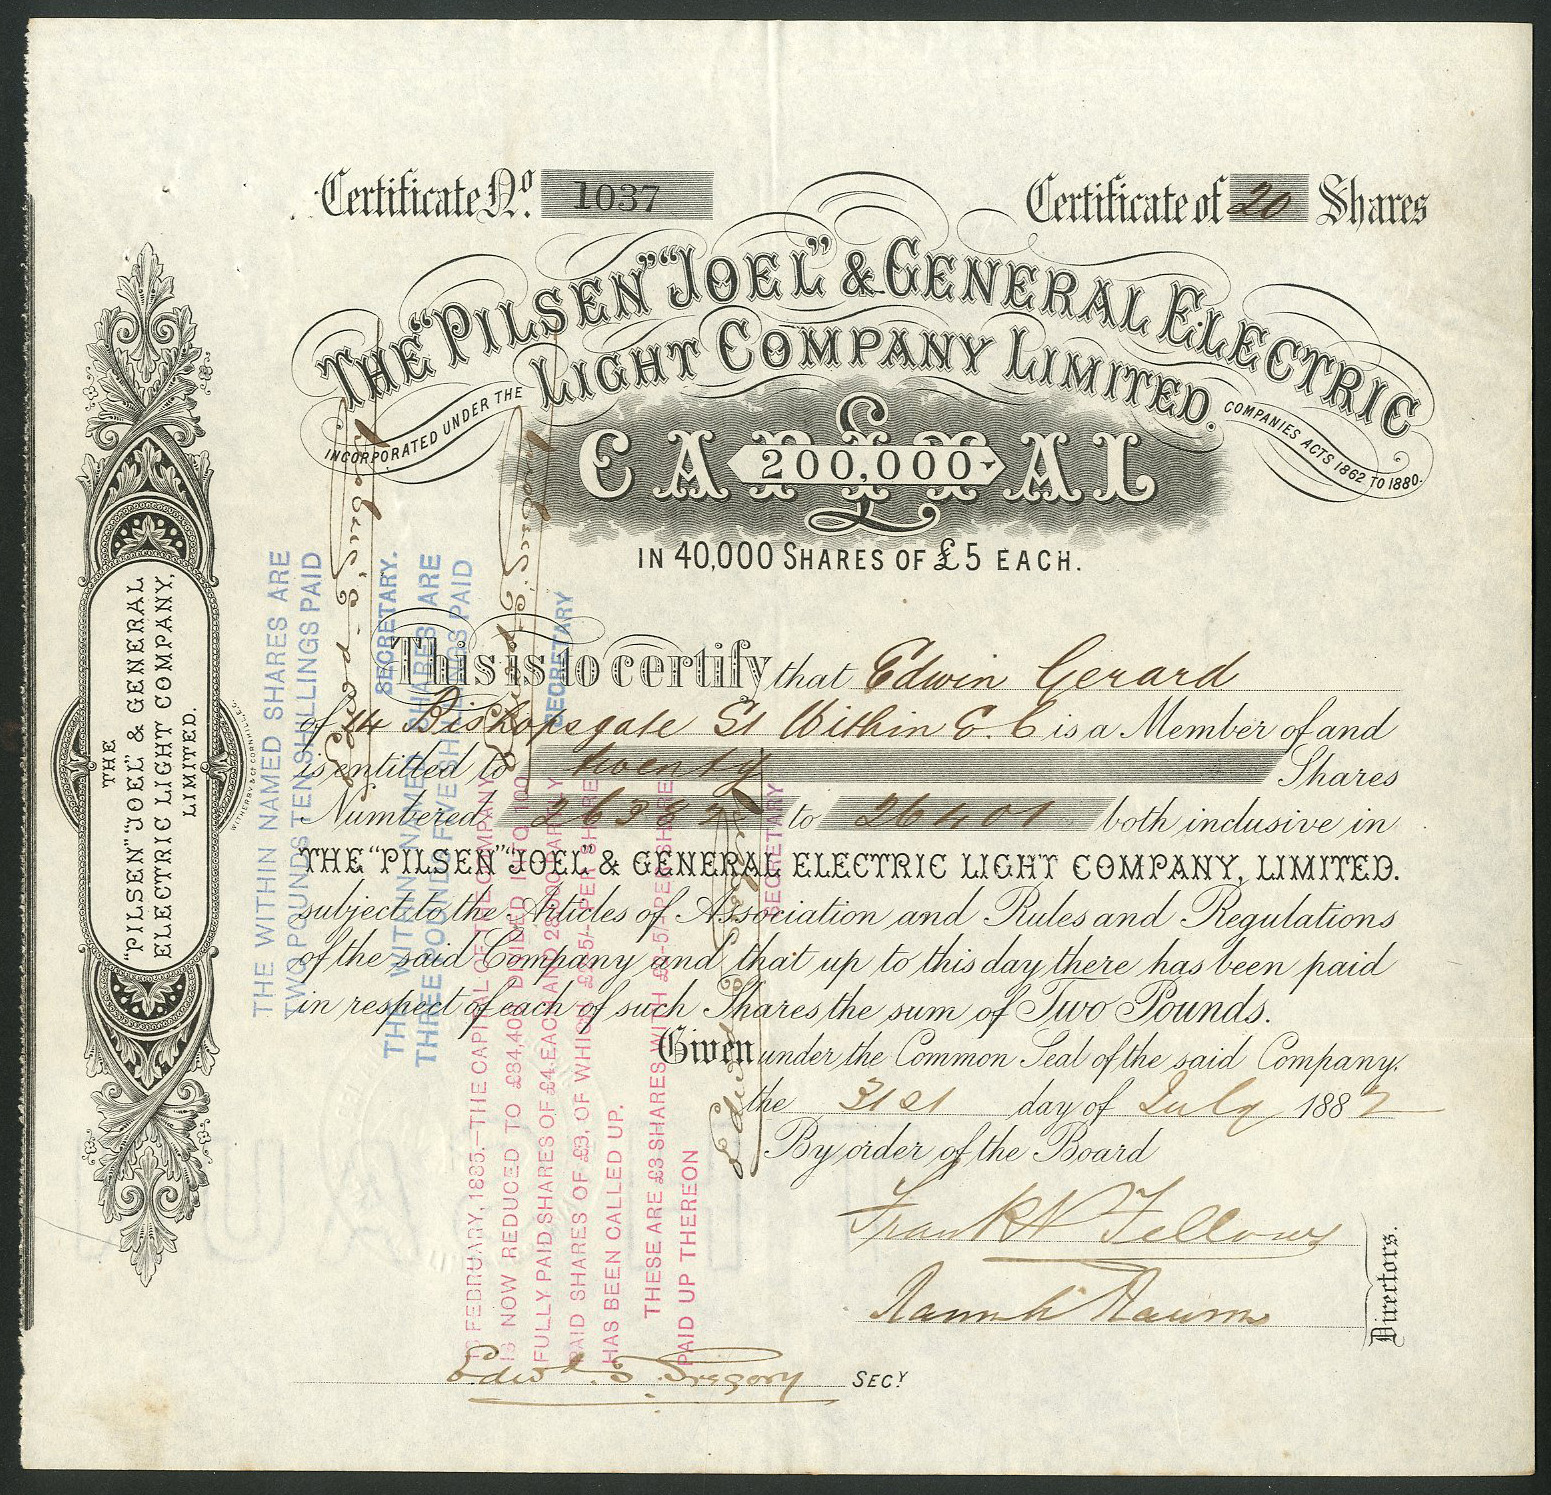 Certificate No. 1037
Certificate of 20 Shares
THE "PILSEN" "JOEL" & GENERAL ELECTRIC
LIGHT COMPANY LIMITED.
INCORPORATED UNDER THE
COMPANIES ACTS 1862 TO 1880.
£
CAPITAL
200,000
IN 40,000 SHARES OF £5 EACH.
This is to certify that Edwin Gerard
of 14 Bishopsgate St Within E.C is a Member of and
is entitled to twenty Shares
Numbered 26382 to 26401 both inclusive in
THE "PILSEN" "JOEL" & GENERAL ELECTRIC LIGHT COMPANY, LIMITED.
subject to the Articles of Association and Rules and Regulations
of the said Company and that up to this day there has been paid
in respect of each of such Shares the sum of Two Pounds.
Given under the Common Seal of the said Company.
the 31st day of July 1882
By order of the Board
Frank H Fellows
Directors.
Edwd. S. Gregory SECY.
THE
"PILSEN" "JOEL" & GENERAL
ELECTRIC LIGHT COMPANY,
LIMITED.
THE WITHIN NAMED SHARES ARE
TWO POUNDS TEN SHILLINGS PAID
SECRETARY.
THE WITHIN NAMED SHARES ARE
THREE POUND FIVE SHILLINGS PAID
SECRETARY
FEBRUARY, 1885.—THE CAPITAL OF THE COMPANY
IS NOW REDUCED TO £84,400 DIVIDED INTO 100
FULLY PAID SHARES OF £4 EACH AND 28,000 PARTLY
PAID SHARES OF £3, OF WHICH £2-5/- PER SHARE
HAS BEEN CALLED UP.
THESE ARE £3 SHARES WITH £2-5/- PER SHARE
PAID UP THEREON
SECRETARY